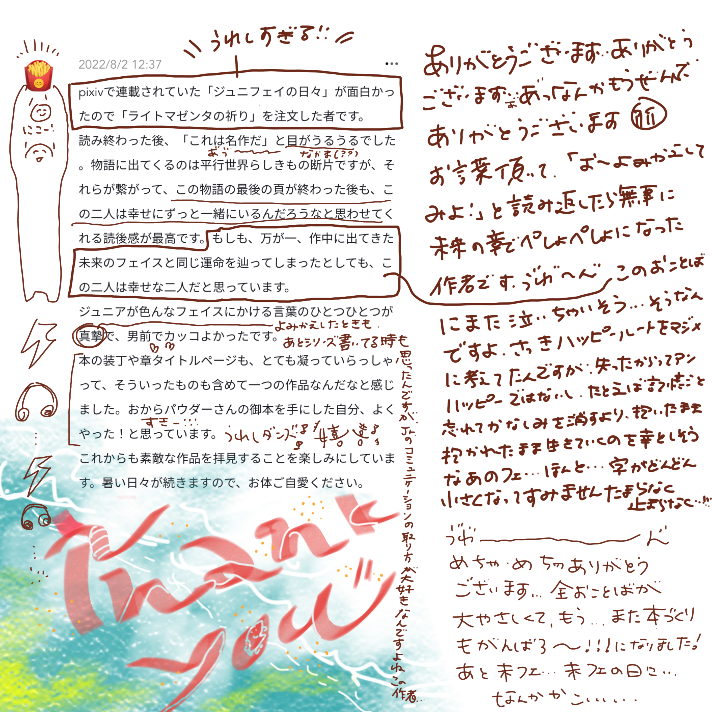 うれしすぎる!!
2022/8/2 12:37
pixivで連載されていた「ジュニフェイの日々」が面白かっ
たので「ライトマゼンタの祈り」を注文した者です。
読み終わった後、「これは名作だ」と目がうるうるでした
。物語に出てくるのは平行世界らしきもの断片ですが、そ
れらが繋がって、この物語の最後の頁が終わった後も、こ
の二人は幸せにずっと一緒にいるんだろうなと思わせてく
れる読後感が最高です。もしも、万が一、作中に出てきた
未来のフェイスと同じ運命を辿ってしまったとしても、こ
の二人は幸せな二人だと思っています。
ジュニアが色んなフェイスにかける言葉のひとつひとつが
真摯で、男前でカッコよかったです。
よみかえしたときも、
あとシリーズ書いてる時も
思ったんですがJrのコミュニケーションの取り方が大好きなんですよねこの作者..
本の装丁や章タイトルページも、とても凝っていらっしゃ
って、そういったものも含めて一つの作品なんだなと感じ
ました。おからパウダーさんの御本を手にした自分、よく
やった！と思っています。
すきー…
うれしダンス
これからも素敵な作品を拝見することを楽しみにしていま
す。暑い日々が続きますので、お体ご自愛ください。
にこ…
Thank
you!!
ありがとうございます…ありがとう
ございます…あっなんかもうぜんぶ
ありがとうございます 祈
お言葉頂いて、「よ～よみかえして
みよ!」と読み返したら無事に
未来の幸でぺしょぺしょになった
作者です、うわ～ん このおことば
にまた泣いちゃいそう…そうなん
ですよ、さっきハッピールートをマジメ
に考えてたんですが、失ったからってアン
ハッピーではないし、たとえば記憶ごと
忘れてかなしみを消すより、抱いたまま
抱かれたまま生きていくのを幸としそう
なあのフェ…ほんと…字がどんどん
小さくなってすみませんたまらなく
止まらなく…!!!
うわ～～ん
めちゃ・めちゃありがとう
ございます… 全おことばが
大やさしくて、もう… また本づくり
もがんばろ～!!!になりました!
あと未フェ… 未フェの日に…
なんかかこい…